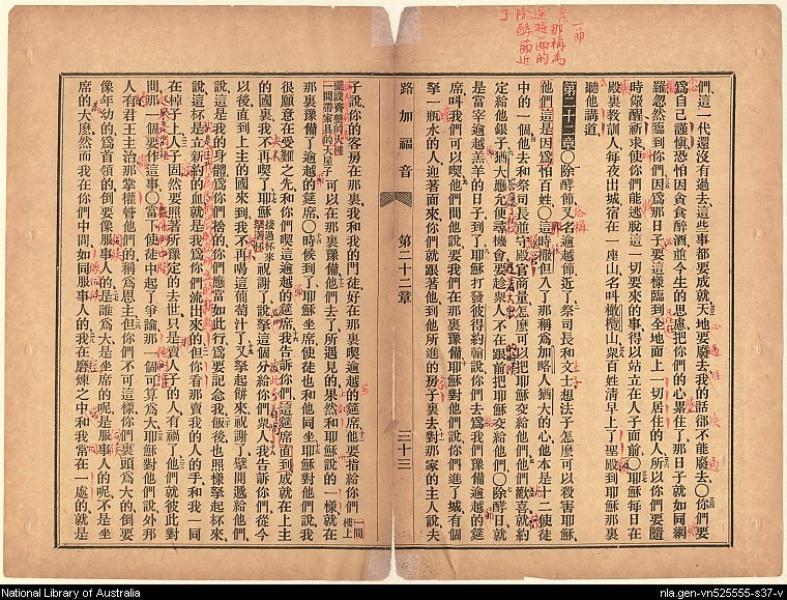 們這一代還沒有過去、這些事都要成就、天地要廢去、我的話卻不能廢去、〇你們要
爲自己謹愼、恐怕因貪食醉酒並今生的思慮、把你們的心累住了、那日子就如同網
羅忽然臨到你們、因爲那日子要這樣臨到全地面上一切居住的人、所以你們要隨
時儆醒祈求、使你們能逃脫這一切要來的事、得以站立在人子面前、〇耶穌每日在
殿裏敎訓人、每夜出城宿在一座山、名叫橄欖山、衆百姓淸早上了聖殿、到耶穌那裏
聽他講道、
第二十二章〇除酵節又名逾越節近了、祭司長和文士想法子怎麼可以殺害耶穌、
他們這是因爲怕百姓、〇這時撒但入了那稱爲加畧人猶大的心、他本是十二使徒
中的一個、他去和祭司長並守殿官商量、怎麼可以把耶穌交給他們、他們歡喜、就約
定給他銀子、猶大應允、便尋機會、要趁衆人不在跟前、把耶穌交給他們、〇除酵日、就
是當宰逾越羔羊的日子到了、耶穌打發彼得約翰、說、你們去爲我們豫備逾越的筵
席、叫我們可以喫、他們問他說、要我們在那裏豫備、耶穌對他們說、你們進了城、有個
拏一瓶水的人、迎著面來、你們就跟著他到他所進的房子裏去、對那家的主人說、夫
路加福音
第二十二章
三十三
子說、你的客房在那裏、我和我的門徒好在那裏喫逾越的筵席、他要指給你們
一間
樓上
擺設齊整的大樓
一間帶家具的大屋子
可以在那裏豫備、他們去了、所遇見的果然和耶穌說的一樣、就在
那裏豫備了逾越的筵席、〇時候到了、耶穌坐席、使徒也和他同坐、耶穌對他們說、我
很願意在受難之先、和你們喫這逾越的筵席、我告訴你們、這筵席直到成就在上主
的國裏、我不再喫了、耶穌
接過杯來
祝謝了、說、拏這個分給你們衆人、我告訴你們、從今
以後、直到上主的國來到、我不再喝這葡萄汁了、又拏起餅來、祝謝了、擘開遞給他們、
說、這是我的身體、爲你們捨的、你們應當如此行、爲要記念我、飯後也照樣拏起杯來、
說、這杯是立新約的血、就是我爲你們流出來的、但你看那賣我的人的手、和我一同
在棹子上、人子固然要照著所豫定的去世、只是賣人子的人有禍了、他們就彼此對
問、那一個要作這事、〇當下使徒中起了爭論、那一個可算爲大、耶穌對他們說、外邦
人有君王主治、那掌權管他們的稱爲恩主、但你們不可這樣、你們裏頭爲大的、倒要
像年幼的、爲首領的倒要像服事人的、是誰爲大、是坐席的呢、是服事人的呢、不是坐
席的大麼、然而我在你們中間、如同服事人的、我在磨煉之中、和我常在一處的就是
National Library of Australia
nla.gen-vn525555-s37-v